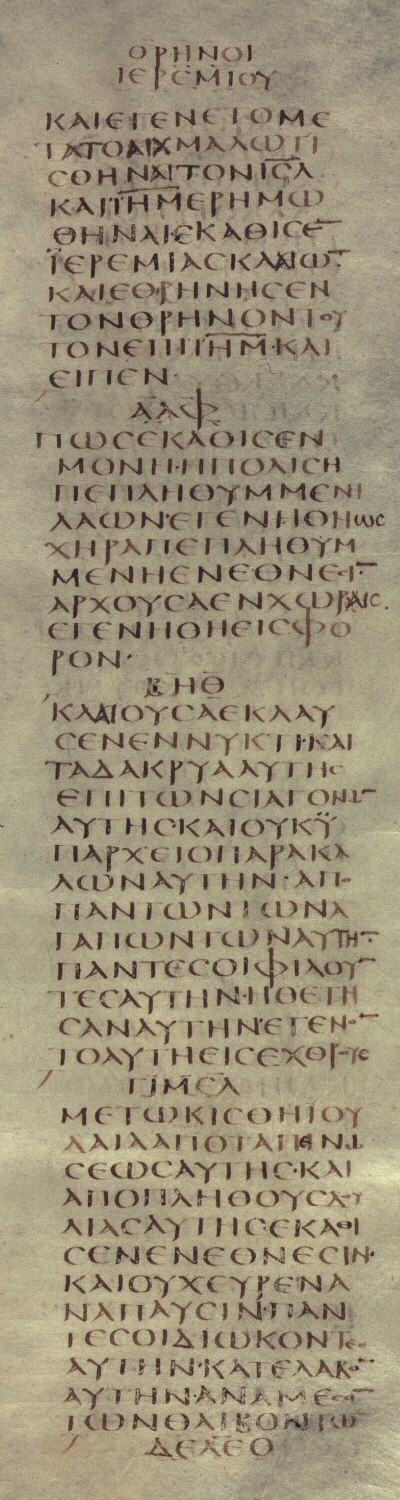 ΘΡΗΝΟΙ
ΙΕΡΕΜΙΟΥ
ΚΑΙΕΓΕΝΕΤΟΜΕ
ΤΑΤΟΑΙΧΜΑΛΩΤΙ
ϹΘΗΝΑΙΤΟΝΙϹΛ
ΚΑΙΙΗΜΕΡΗΜΩ
ΘΗΝΑΙΕΚΑΘΙϹΕ
ΪΕΡΕΜΙΑϹΚΛΑΙΩ
ΚΑΙΕΘΡΗΝΗϹΕΝ
ΤΟΝΘΡΗΝΟΝΤΟΥ
ΤΟΝΕΠΙΙΗΜ·ΚΑΙ
ΕΙΠΕΝ·
ΑΛΦ
ΠΩϹΕΚΑΘΙϹΕΝ
ΜΟΝΗ·ΗΠΟΛΙϹΗ
ΠΕΠΛΗΘΥΜΜΕΝΗ
ΛΑΩΝ·ΕΓΕΝΗΘΗωϲ
ΧΗΡΑΠΕΠΛΗΘΥΜ
ΜΕΝΗΕΝΕΘΝΕϹΙ
ΑΡΧΟΥϹΑΕΝΧΩΡΑΙϹ
ΕΓΕΝΗΘΗΕΙϹΦΟ
ΡΟΝ·
ΒΗΘ
ΚΛΑΙΟΥϹΑΕΚΛΑΥ
ϹΕΝΕΝΝΥΚΤΙ·ΚΑΙ
ΤΑΔΑΚΡΥΑΑΥΤΗϹ
ΕΠΙΤΩΝϹΙΑΓΟΝΩ
ΑΥΤΗϹΚΑΙΟΥΚΫ
ΠΑΡΧΕΙΟΠΑΡΑΚΑ
ΛΩΝΑΥΤΗΝ·ΑΠΟ
ΠΑΝΤΩΝΤΩΝΑ
ΓΑΠΩΝΤΩΝΑΥΤΗ
ΠΑΝΤΕϹΟΙΦΙΛΟΥ
ΤΕϹΑΥΤΗΝ·ΗΘΕΤΗ
ϹΑΝΑΥΤΗΝ·ΕΓΕΝΟ
ΤΟΑΥΤΗΕΙϹΕΧΘΡΟΥϹ
ΓΙΜΕΛ
ΜΕΤΩΚΙϹΘΗΙΟΥ
ΔΑΙΑΑΠΟΤΑΠΕΙΝΩ
ϹΕΩϹΑΥΤΗϹ·ΚΑΙ
ΑΠΟΠΛΗΘΟΥϹΔΟΥ
ΛΙΑϹΑΥΤΗϹΕΚΑΘΙ
ϹΕΝΕΝΕΘΝΕϹΙΝ·
ΚΑΙΟΥΧΕΥΡΕΝΑ
ΝΑΠΑΥϹΙΝ·ΠΑΝ
ΤΕϹΟΙΔΙΩΚΟΝΤΕϹ
ΑΥΤΗΝ·ΚΑΤΕΛΑΒΟ
ΑΥΤΗΝ·ΑΝΑΜΕϹΟ
ΤΩΝΘΛΙΒΟΝΤΩ
ΔΕΛΕΘ